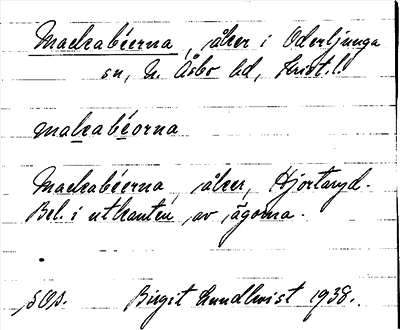 Mackabéerna, åker i Oderljunga
sn, N. Åsbo hd, Krist. l.
makabéorna
Mackabéerna, åker, Hjortaryd.
Bel. i utkanten av ägorna.
Birgit Lundkvist 1938.